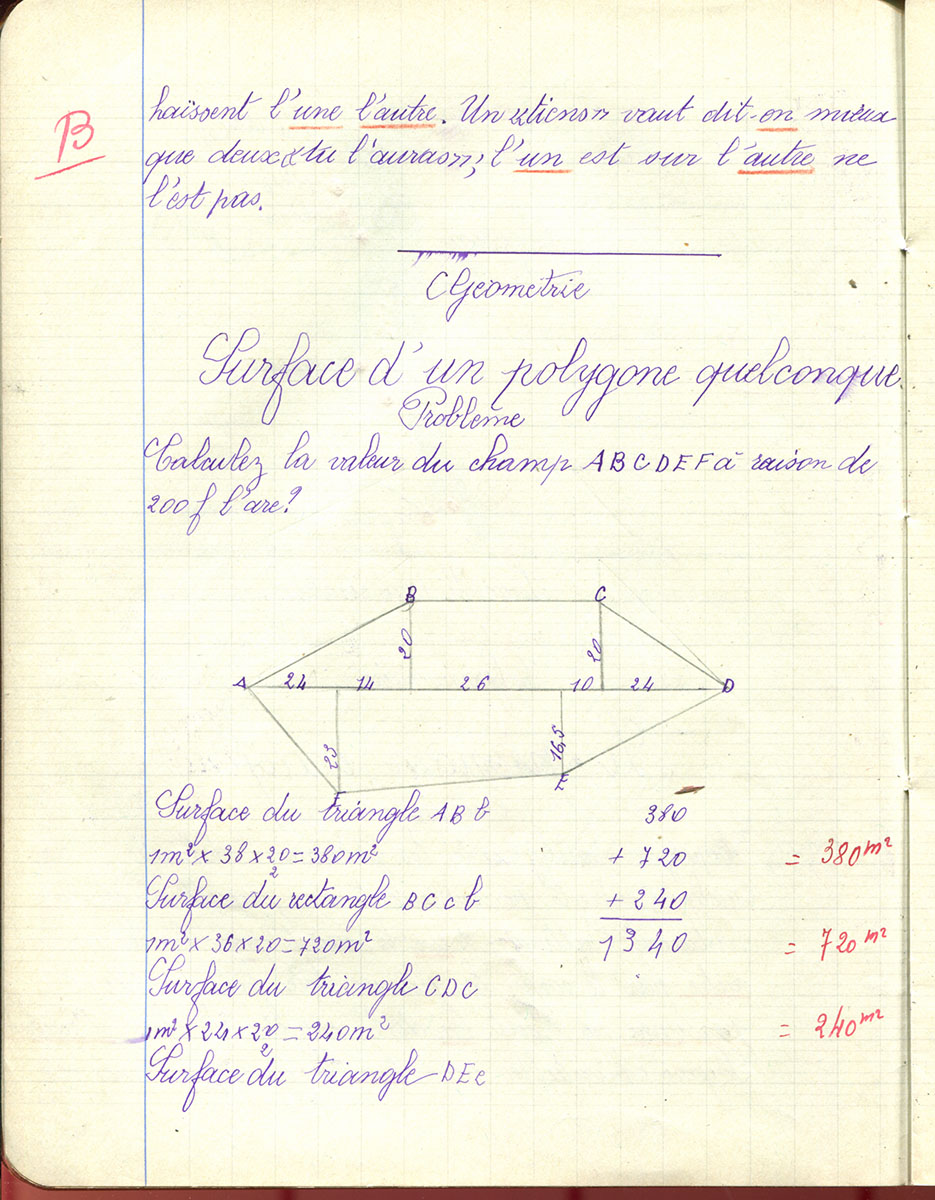 B
haïssent l'une l'autre. Un «tiens» vaut dit-on mieux
que deux «tu l'auras»; l'un est sur l'autre ne
l'est pas.
Géometrie
Surface d'un polygone quelconque.
Problème
Calculez la valeur du champ ABCDEF à raison de
200 f l'are?
B C
20 20
A 24 14 26 10 24 D
23 16,5
F E
Surface du triangle ABb 380
1m² × 38 × 20/2 = 380m² + 720 = 380 m²
Surface du rectangle BCcb + 240
1m² × 36 × 20 = 720m² 1340 = 720 m²
Surface du triangle CDc
1m² × 24 × 20/2 = 240m² = 240 m²
Surface du triangle DEe